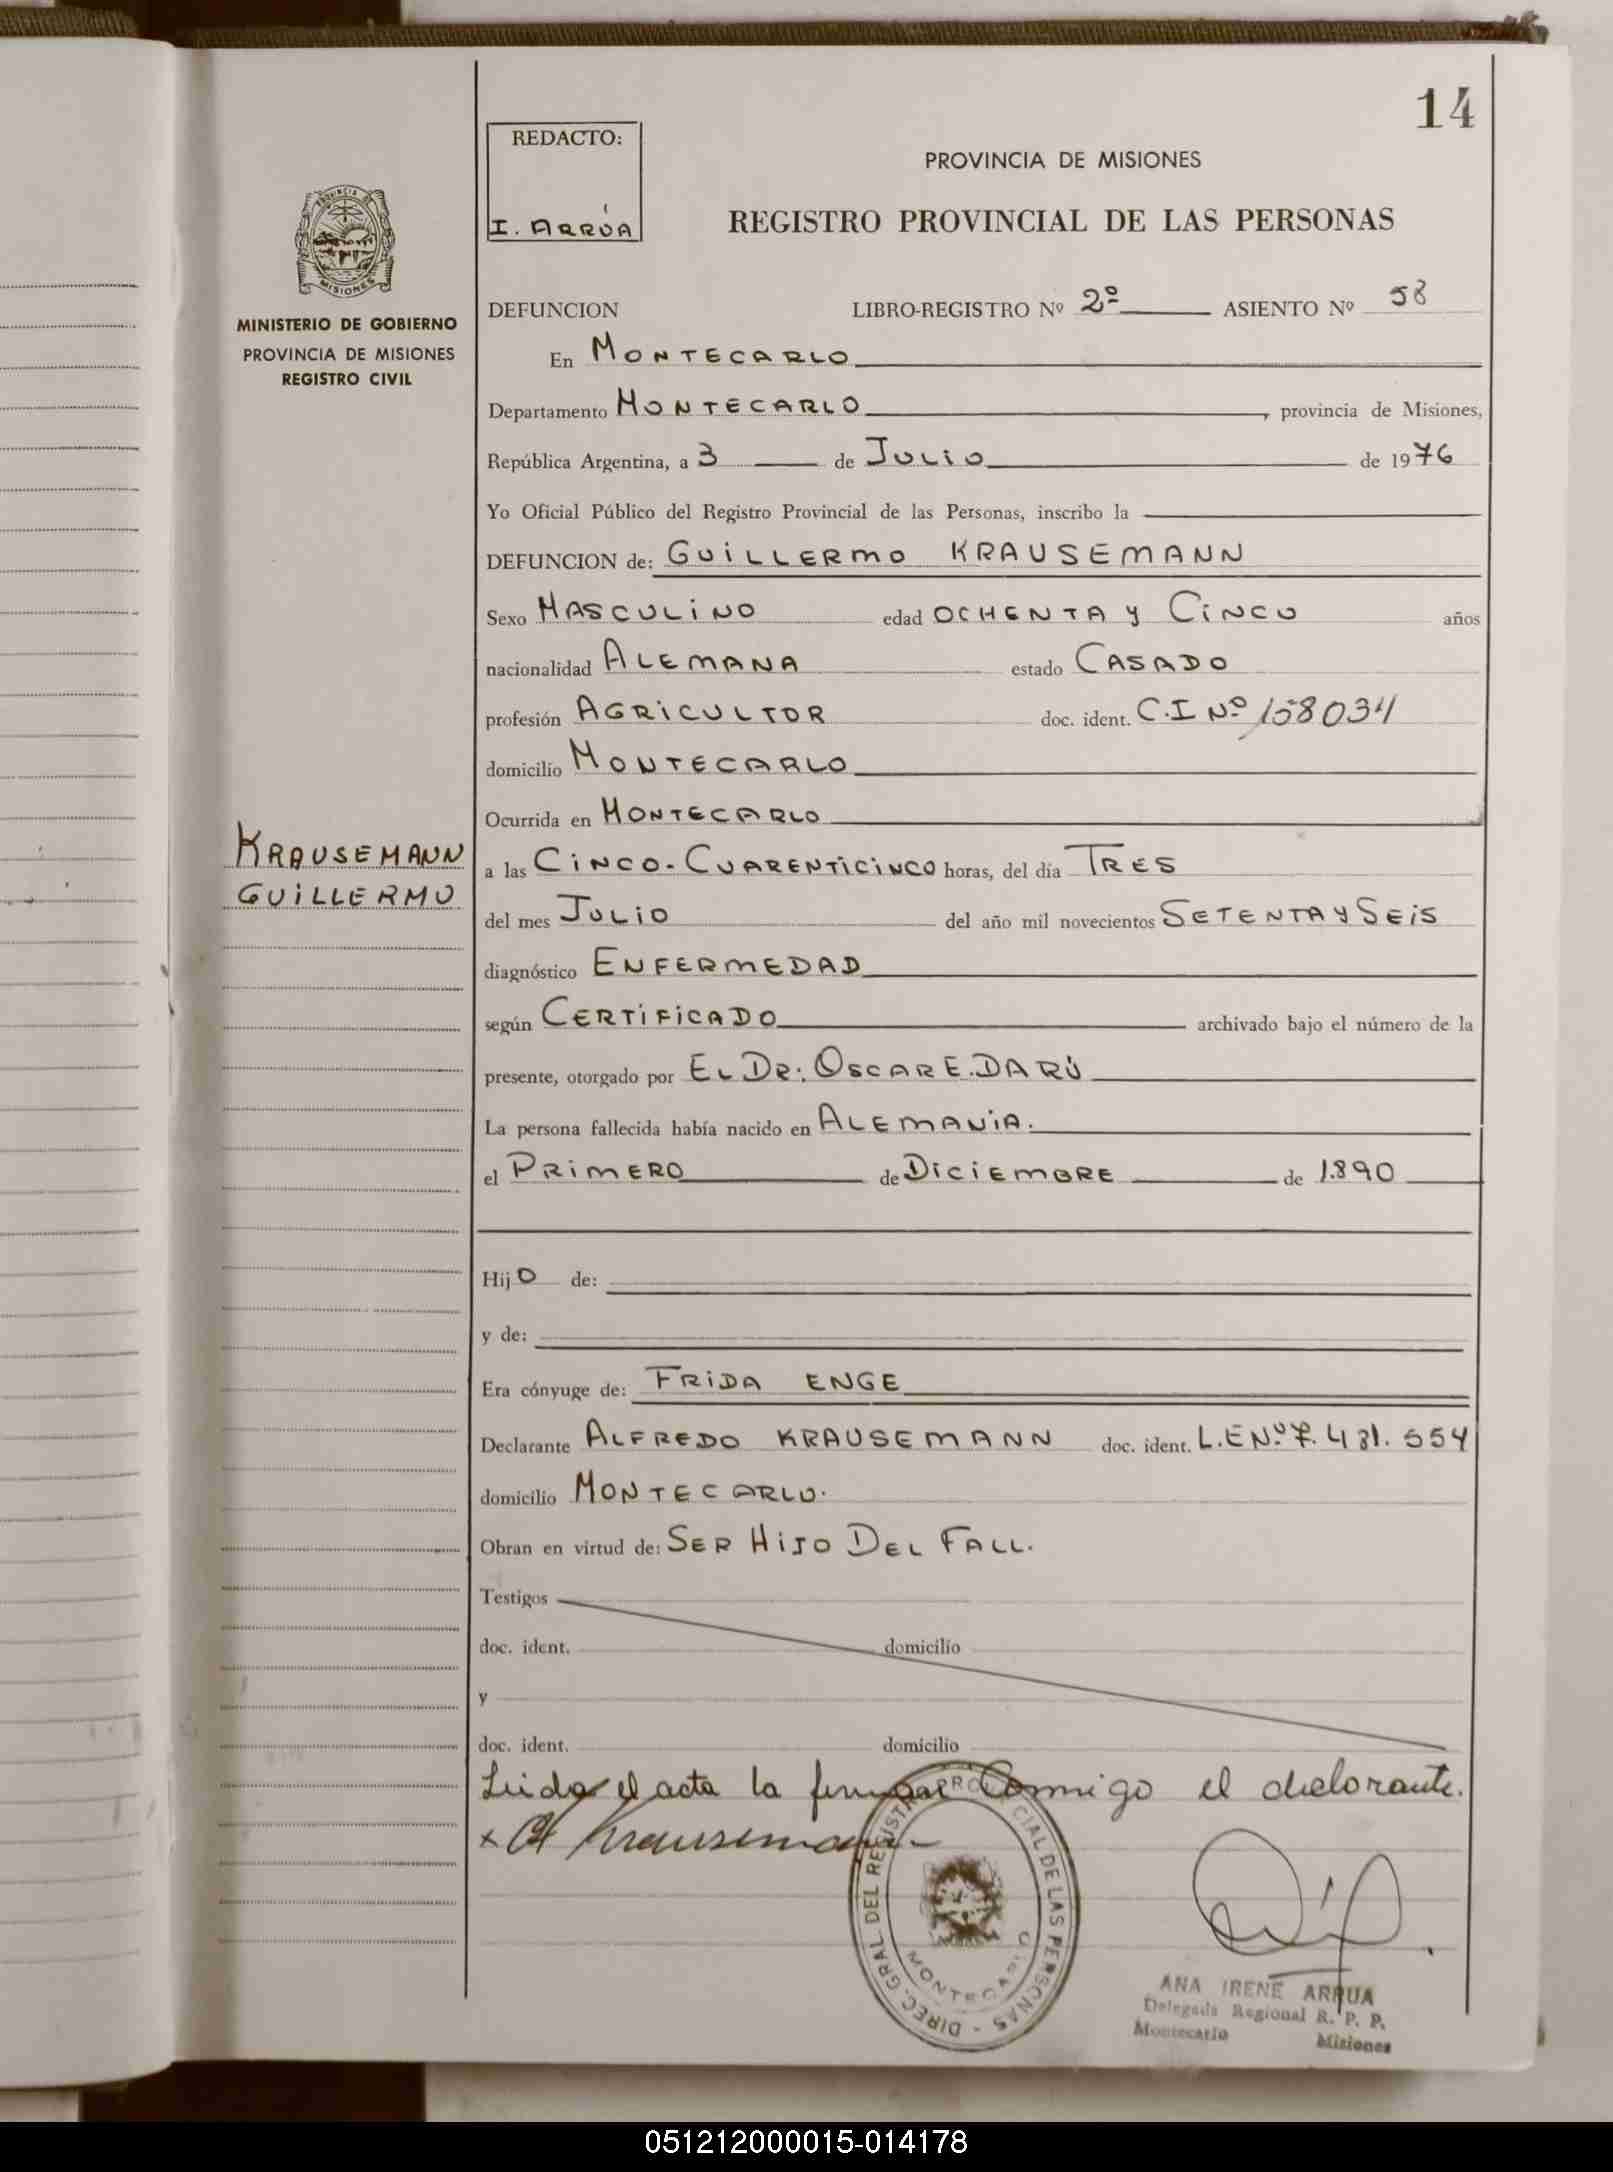 14
REDACTO:
I. ARRÚA
PROVINCIA DE MISIONES
REGISTRO PROVINCIAL DE LAS PERSONAS
PROVINCIA DE
MISIONES
MINISTERIO DE GOBIERNO
PROVINCIA DE MISIONES
REGISTRO CIVIL
DEFUNCION LIBRO-REGISTRO Nº 2º ASIENTO Nº 58
En MONTECARLO
Departamento MONTECARLO, provincia de Misiones,
República Argentina, a 3 de JULIO de 1976
Yo Oficial Público del Registro Provincial de las Personas, inscribo la
DEFUNCION de: GUILLERMO KRAUSEMANN
Sexo MASCULINO edad OCHENTA Y CINCO años
nacionalidad ALEMANA estado CASADO
profesión AGRICULTOR doc. ident. C.I Nº 158034
domicilio MONTECARLO
Ocurrida en MONTECARLO
KRAUSEMANN
GUILLERMO
a las CINCO-CUARENTICINCO horas, del día TRES
del mes JULIO del año mil novecientos SETENTA Y SEIS
diagnóstico ENFERMEDAD
según CERTIFICADO archivado bajo el número de la
presente, otorgado por EL DR: OSCAR E. DARÚ
La persona fallecida había nacido en ALEMANIA.
el PRIMERO de DICIEMBRE de 1.890
Hijo de:
y de:
Era cónyuge de: FRIDA ENGE
Declarante ALFREDO KRAUSEMANN doc. ident. L.E Nº 7.481.554
domicilio MONTECARLO.
Obran en virtud de: SER HIJO DEL FALL.
Testigos
doc. ident. domicilio
y
doc. ident. domicilio
Leida el acta la firman conmigo el declarante.
x A Krausemann
DIREC. GRAL DEL REGISTRO PROVINCIAL DE LAS PERSONAS -
MONTECARLO
ANA IRENE ARRUA
Delegada Regional R. P. P.
Montecarlo Misiones
051212000015-014178